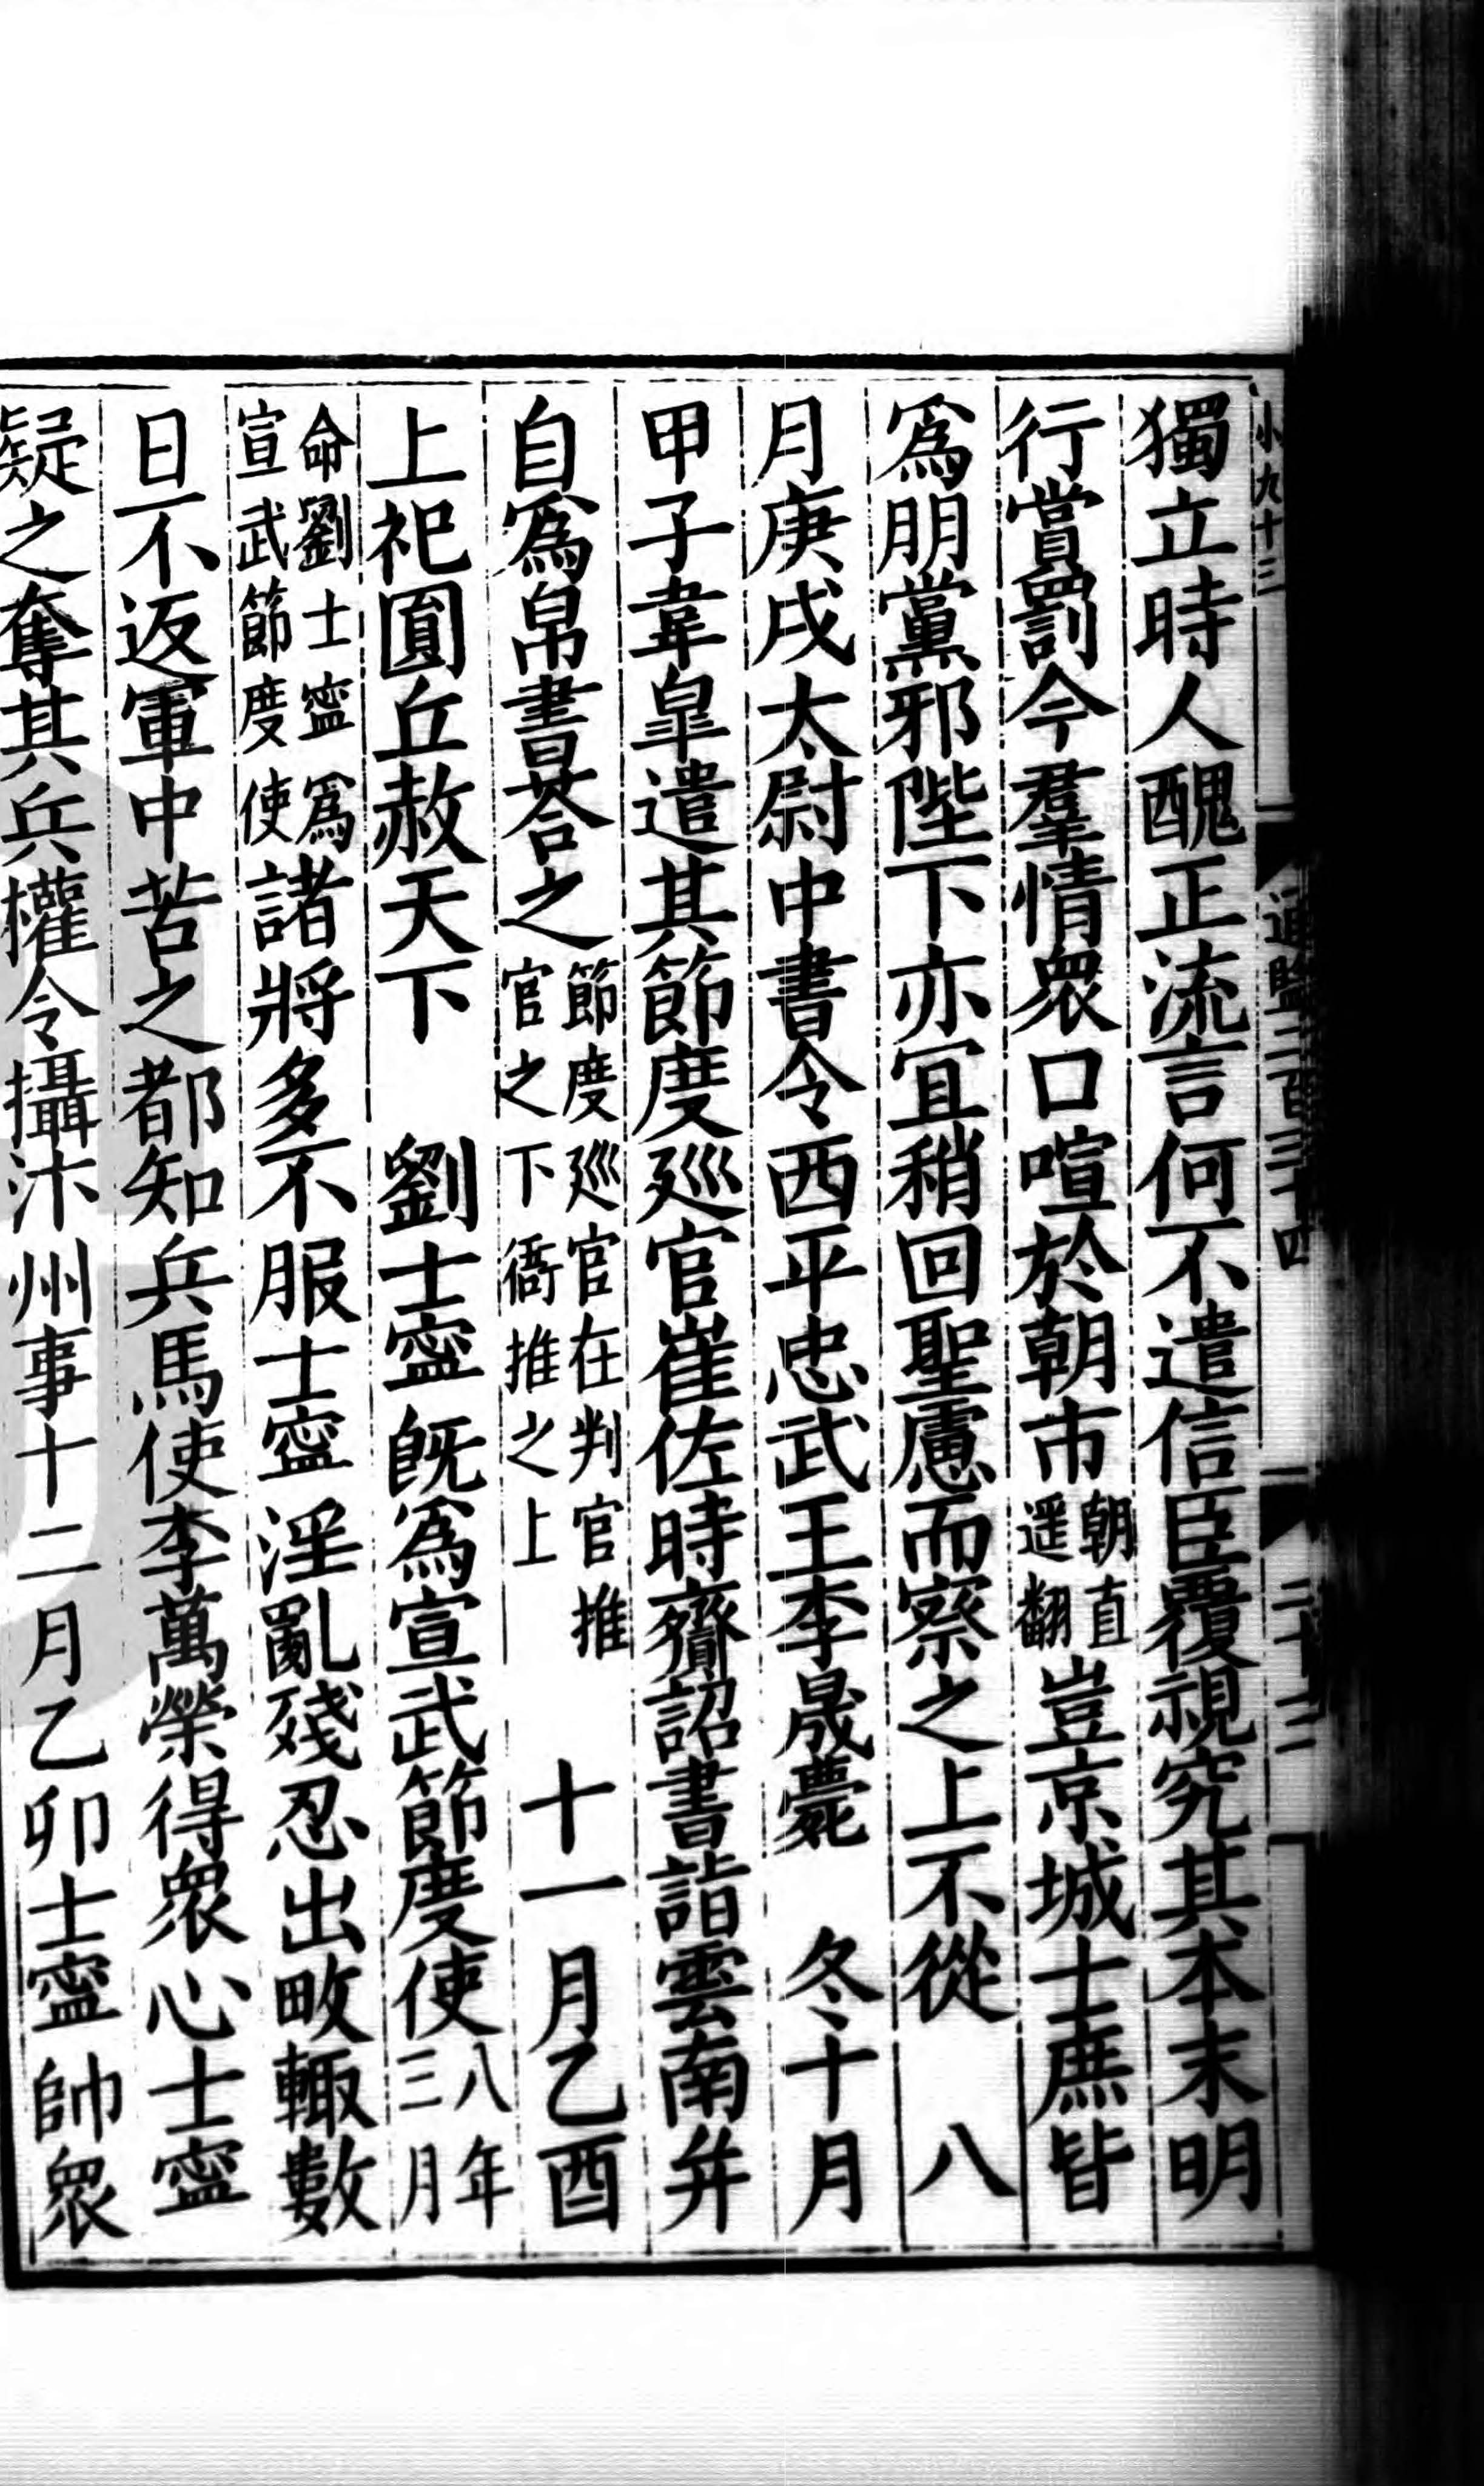 小九十三 通鑑二百三十四 二十二
獨立時人醜正流言何不遣信臣覆視究其本末明
行賞罰今羣情衆口喧於朝市朝直遥翻豈京城士庶皆
爲朋黨邪陛下亦宜稍回聖慮而察之上不從 八
月庚戌太尉中書令西平忠武王李晟薨 冬十月
甲子韋皐遣其節度廵官崔佐時齎詔書詣雲南并
自爲帛書荅之節度廵官在判官推官之下衙推之上 十一月乙酉
上祀圓丘赦天下 劉士寧既爲宣武節度使八年三月
命劉士寧爲宣武節度使諸將多不服士寧淫亂殘忍出畋輙數
日不返軍中苦之都知兵馬使李萬榮得衆心士寧
疑之奪其兵權令攝汴州事十二月乙卯士寧帥衆